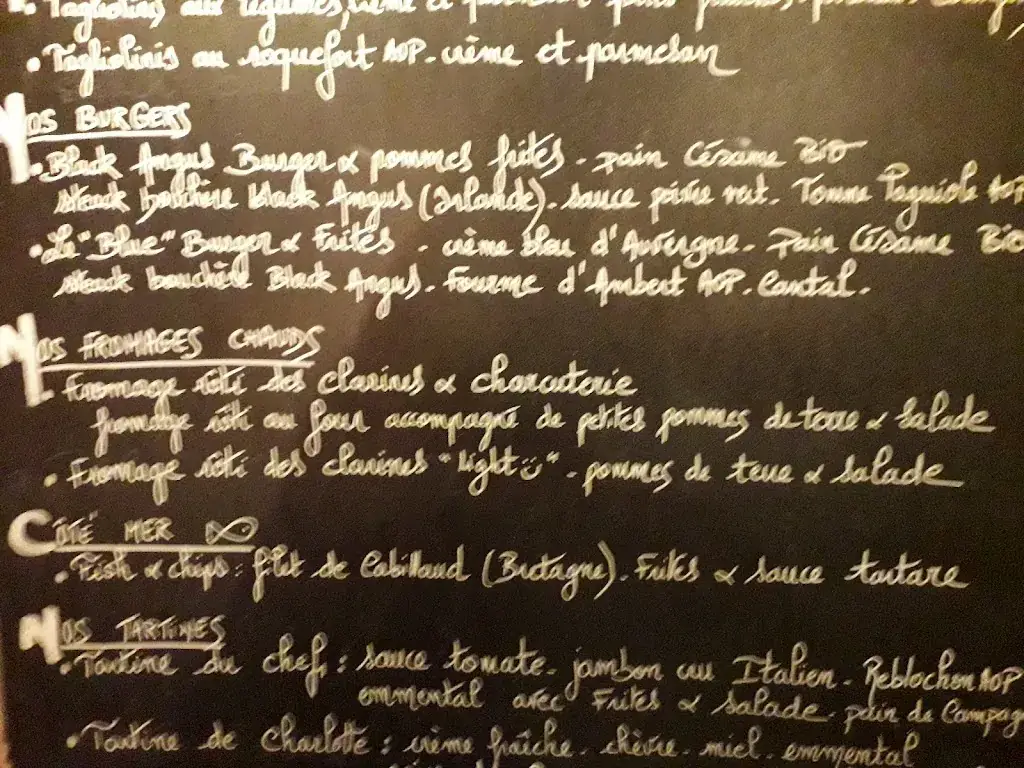 Tagliolinis aux légumes, crème et parmesan
• Tagliolinis au roquefort AOP. crème et parmesan
NOS BURGERS
• Black Angus Burger & pommes frites. pain Césame Bio
steak bouchère black Angus (Irlande). sauce poivre vert. Tomme Laguiole AOP
• Le "Blue" Burger & Frites. crème bleu d'Auvergne. Pain Césame Bio
steak bouchère Black Angus. Fourme d'Ambert AOP. Cantal.
NOS FROMAGES CHAUDS
• Fromage rôti des clarines & charcuterie
fromage rôti au four accompagné de petites pommes de terre & salade
• Fromage rôti des clarines "light". pommes de terre & salade
CÔTÉ MER
• Fish & chips : filet de Cabillaud (Bretagne). Frites & sauce tartare
NOS TARTINES
• Tartine du chef : sauce tomate. jambon cru Italien. Reblochon AOP
emmental avec Frites & salade. pain de Campag
• Tartine de Charlotte : crème fraîche. chèvre. miel. emmental